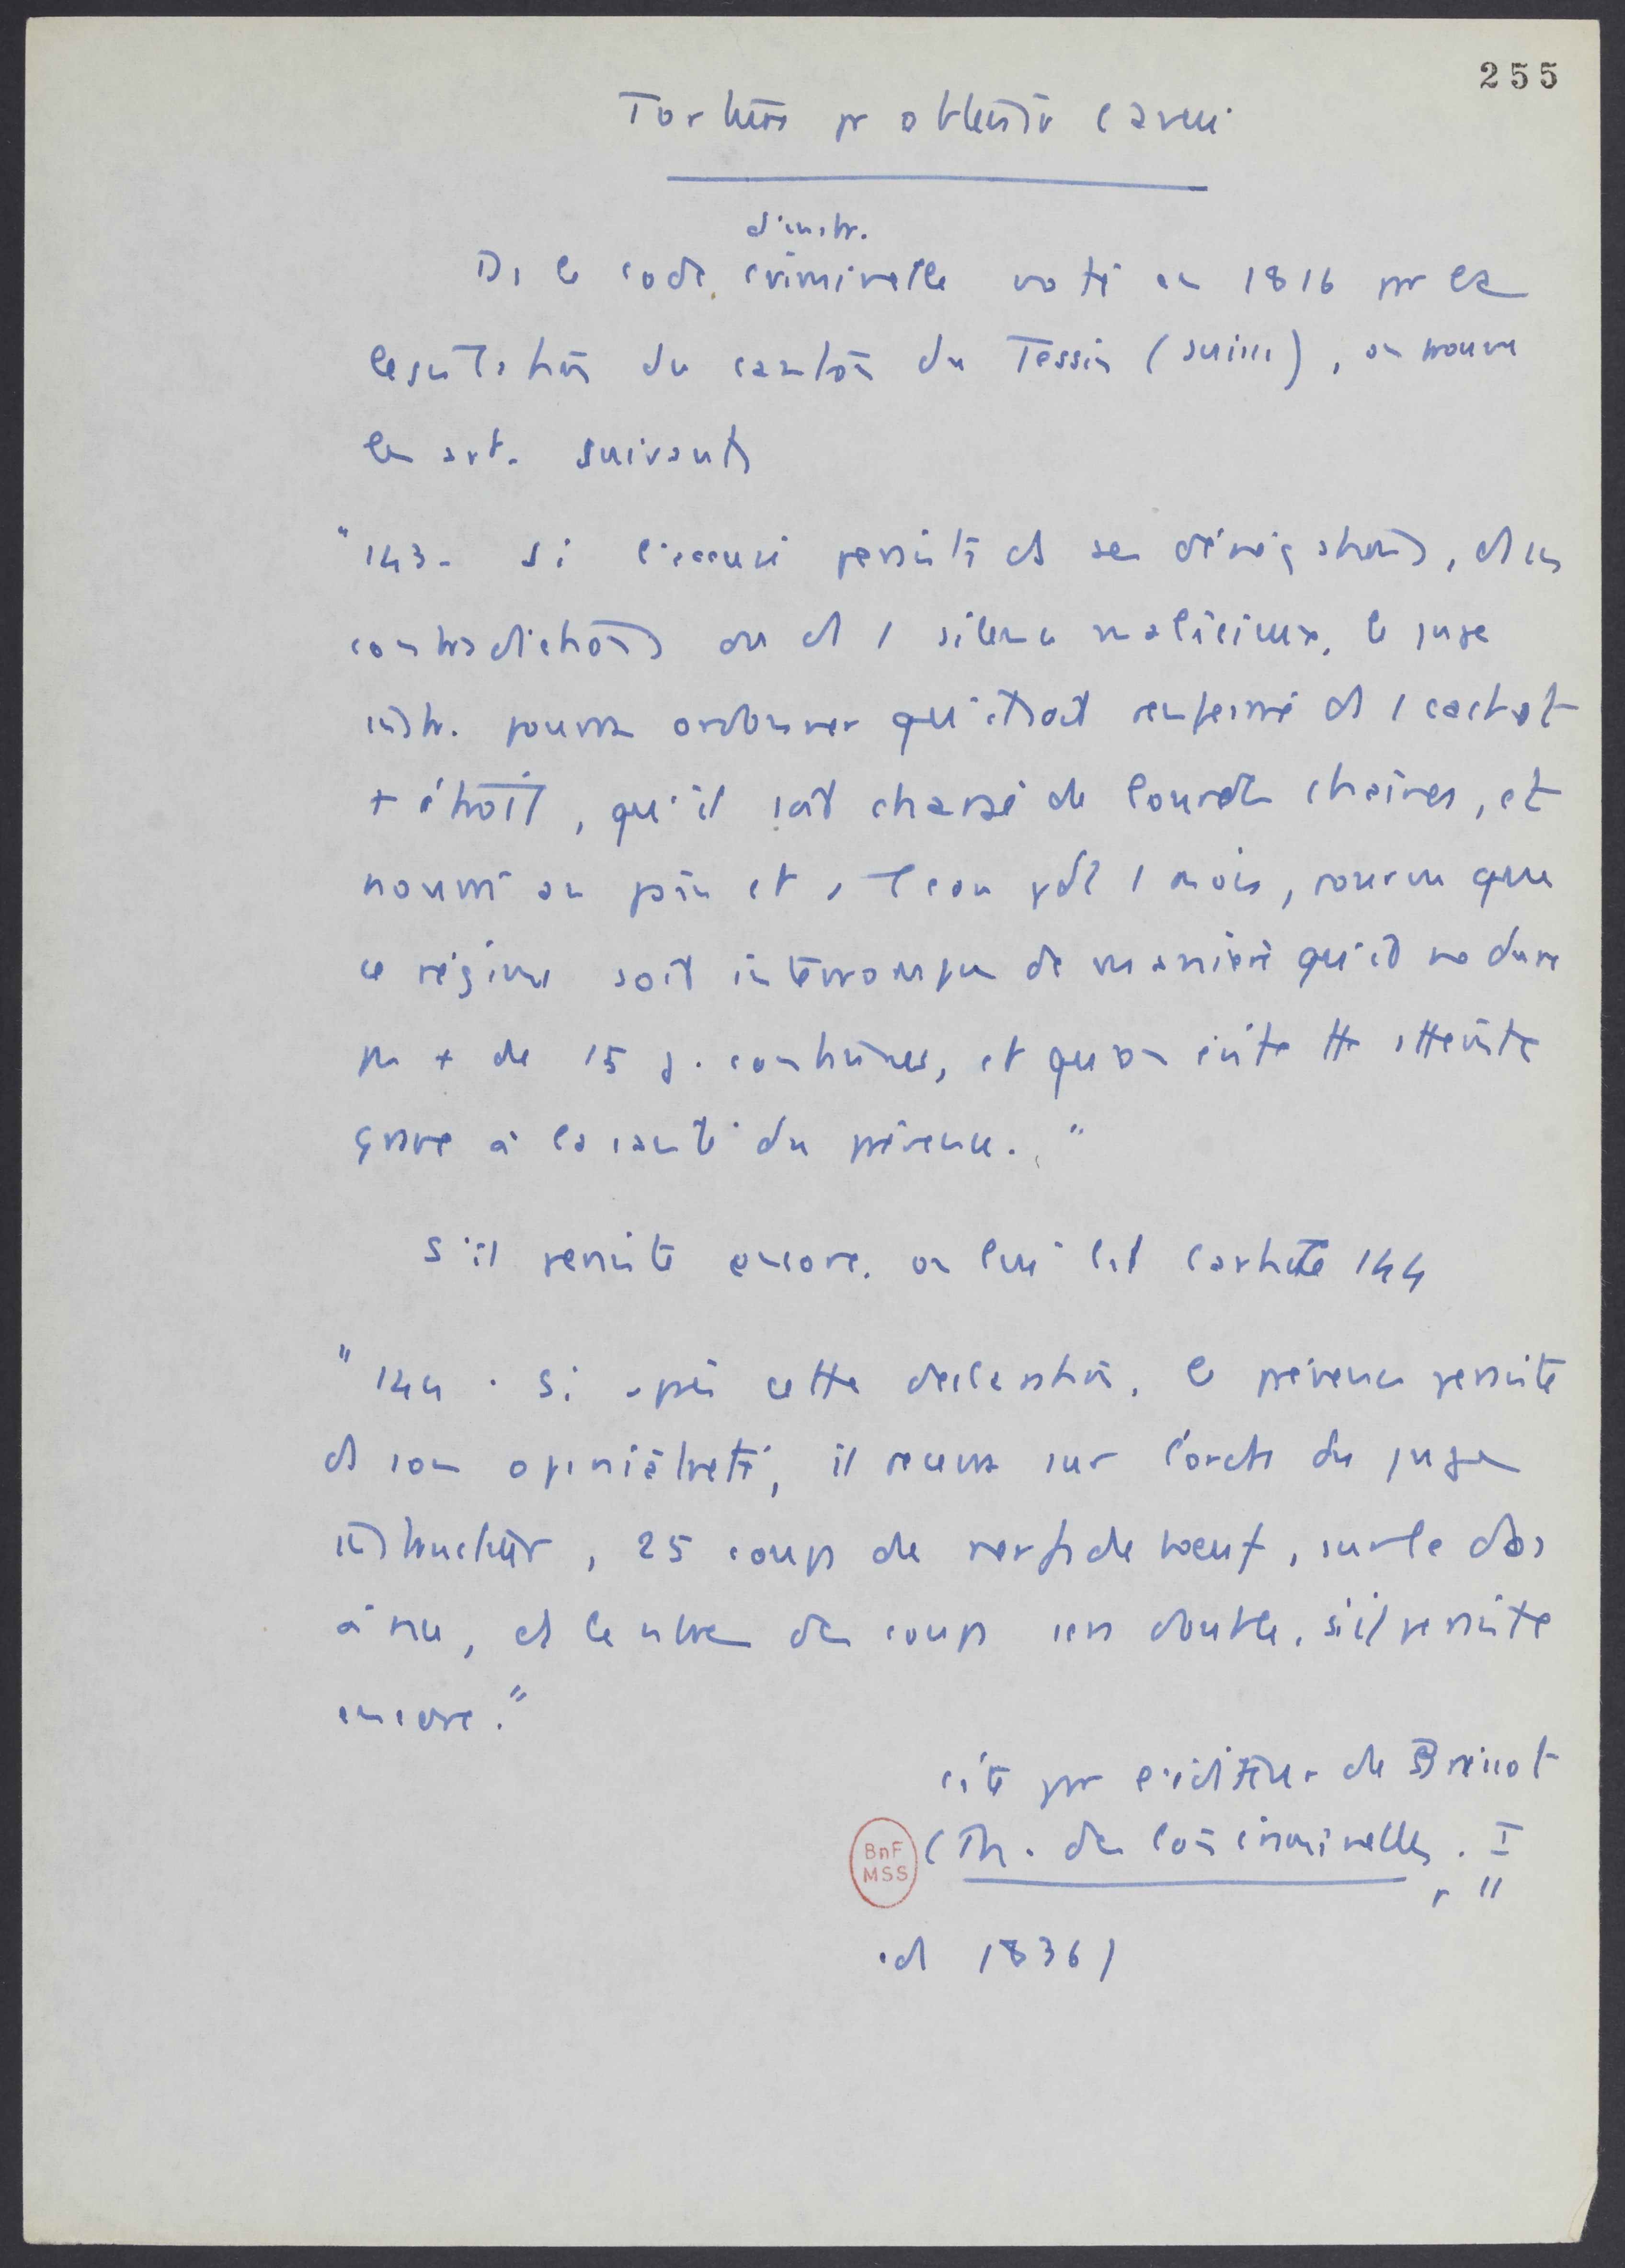 255
Torture pr obtenir l'aveu
d'instr.
Ds le code criminelle voté en 1816 par la
législation du canton du Tessin (Suisse), on trouve
les art. suivants
"143- Si l'accusé persiste ds ses dénégations, ds ses
contradictions ou ds 1 silence malicieux, le juge
instr. pourra ordonner qu'il soit renfermé ds 1 cachot
+ étroit, qu'il soit chargé de lourdes chaînes, et
nourri au pain et à l'eau pdt 1 mois, pourvu que
ce régime soit interrompu de manière qu'il ne dure
pas + de 15 j. continues, et qu'on évite tte atteinte
grave à la santé du prévenu."
S'il persiste encore, on lui lit l'article 144
"144. Si après cette déclaration, le prévenu persiste
ds son opiniâtreté, il recevra sur l'ordre du juge
instructeur, 25 coups de nerfs de boeuf, sur le dos
à nu, et le nbre des coups sera double, s'il persiste
encore."
cité par l'éditeur de Brissot
(Th. des lois criminelles. I
r 11
BnF
MSS
ed 1836)